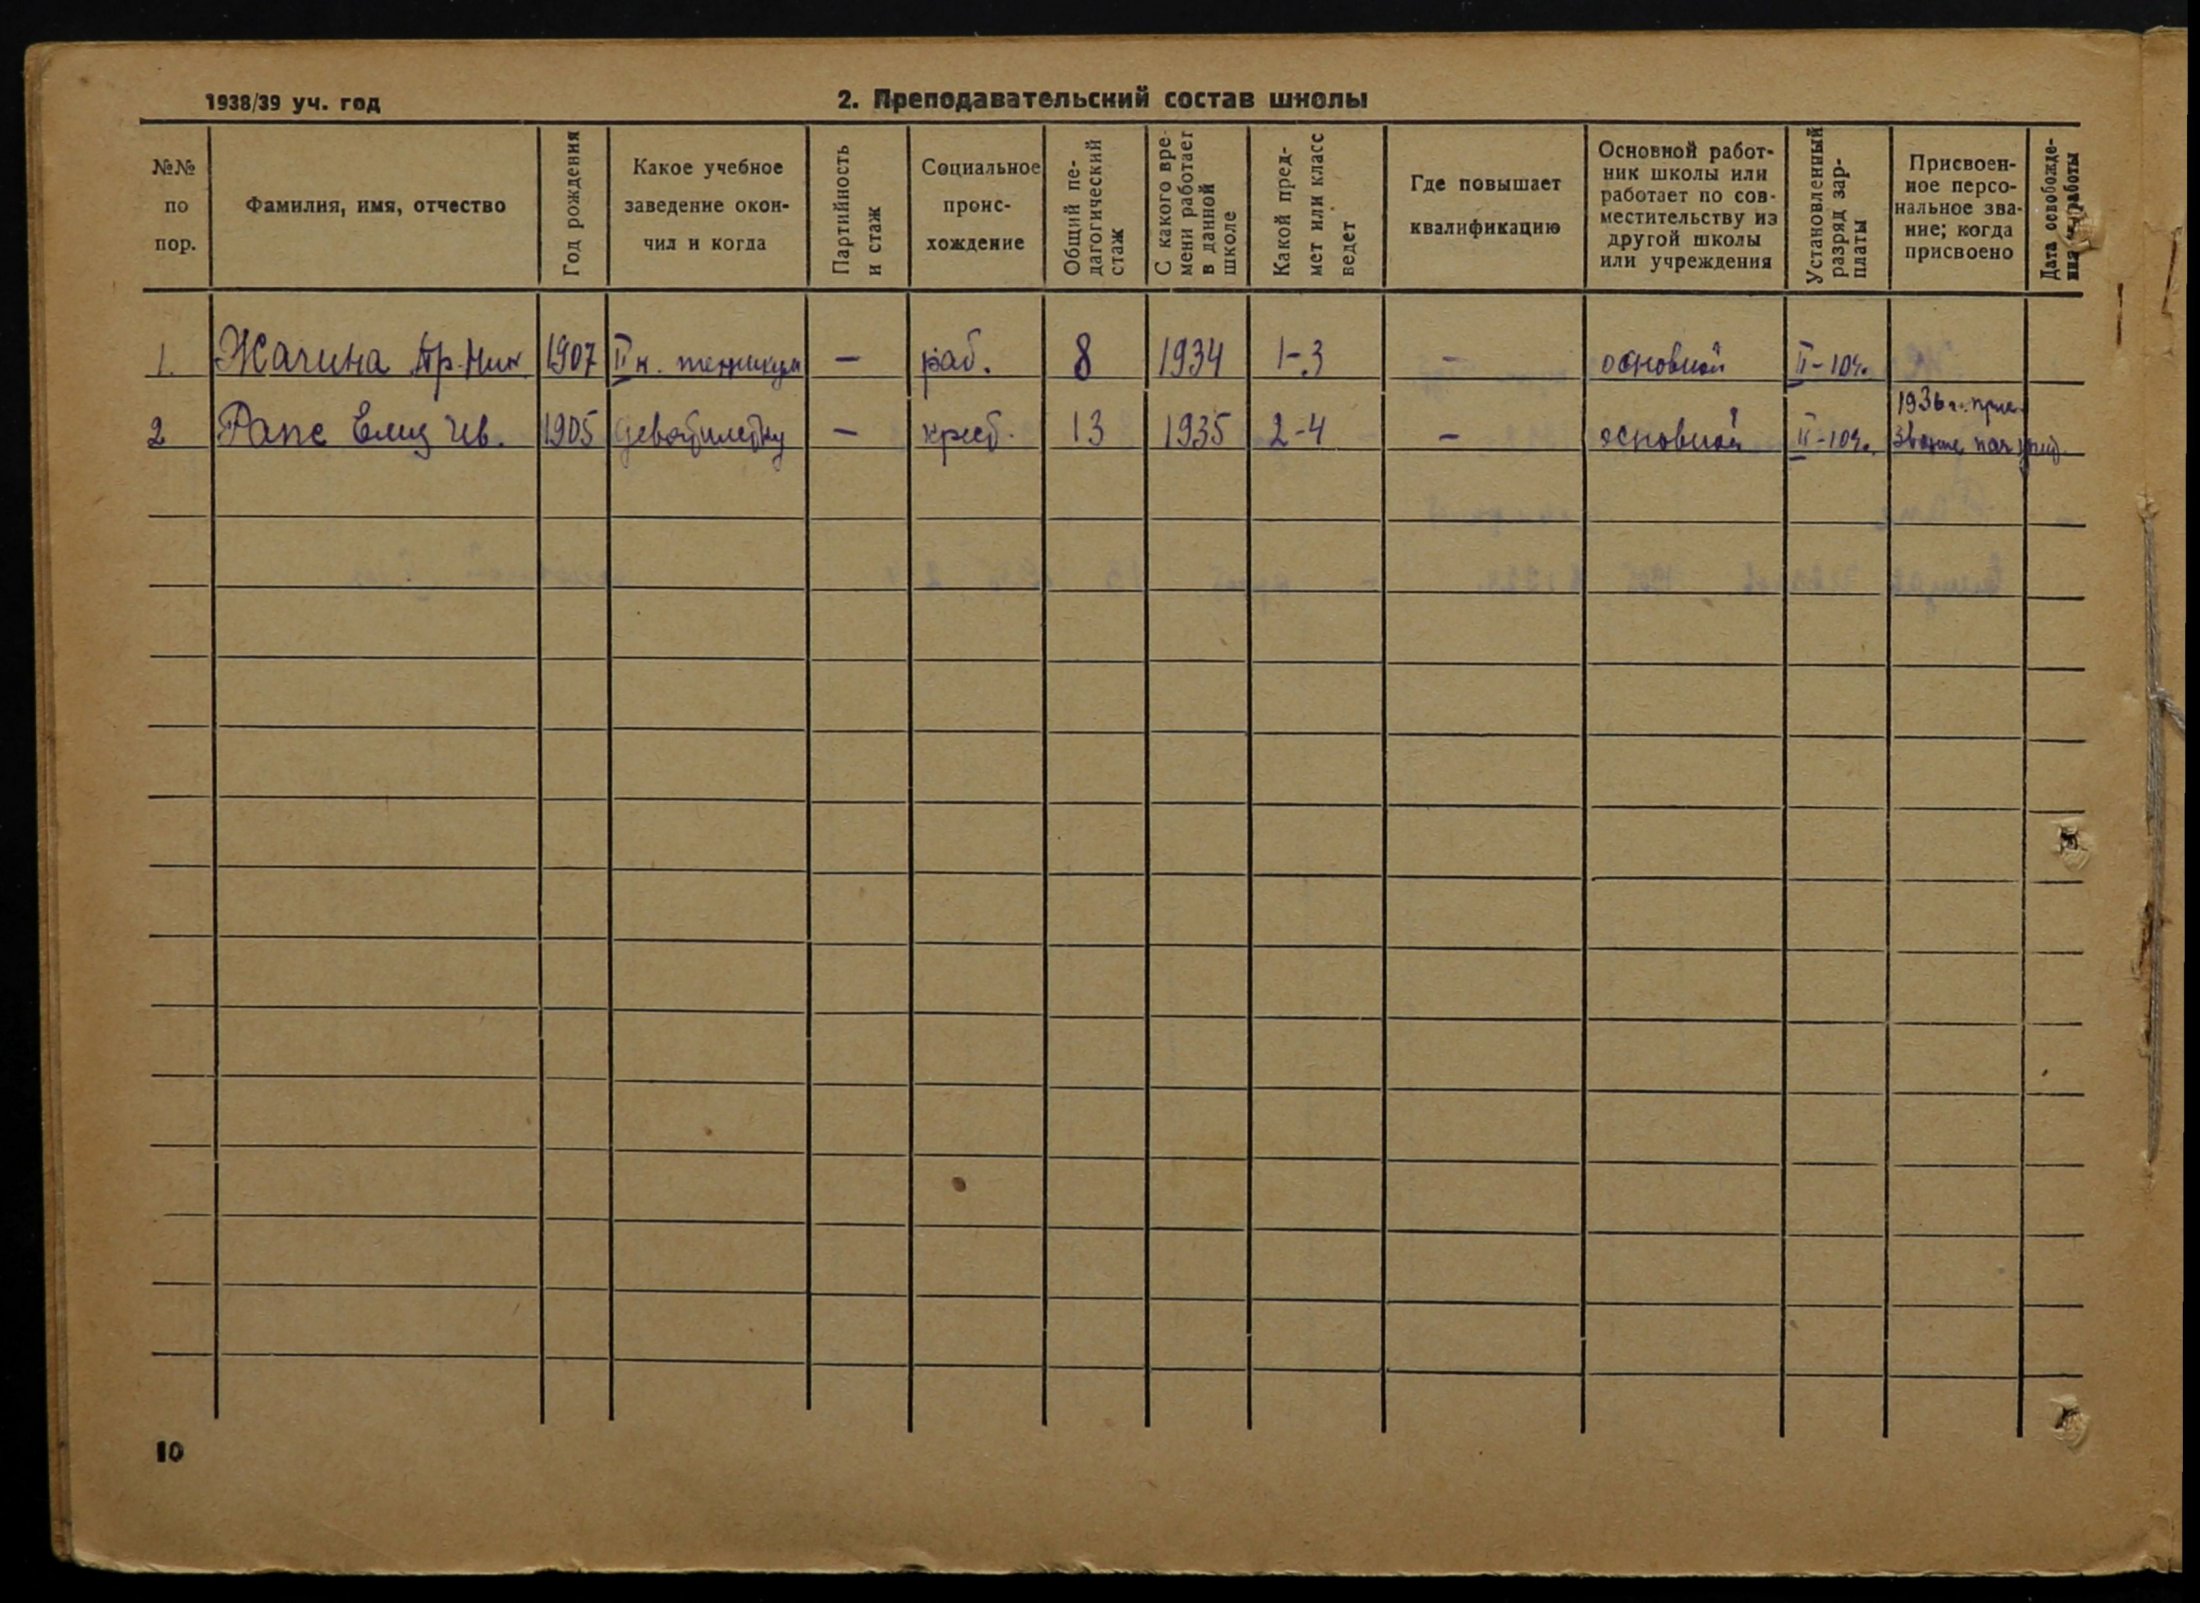 1938/39 уч. год
2. Преподавательский состав школы
№№ по пор.
Фамилия, имя, отчество
Год рождения
Какое учебное заведение окончил и когда
Партийность и стаж
Социальное происхождение
Общий педагогический стаж
С какого времени работает в данной школе
Какой предмет или класс ведет
Где повышает квалификацию
Основной работник школы или работает по совместительству из другой школы или учреждения
Установленный разряд зарплаты
Присвоенное персональное звание; когда присвоено
Дата освобождения работы
1. Жагина Ник. 1907 II техникум — раб. 8 1934 1-3 — основной II-10
1936 г.
2 Рапе Елиз Ив. 1905 девятилетку — крест. 13 1935 2-4 — основной II-10 звание нач
10